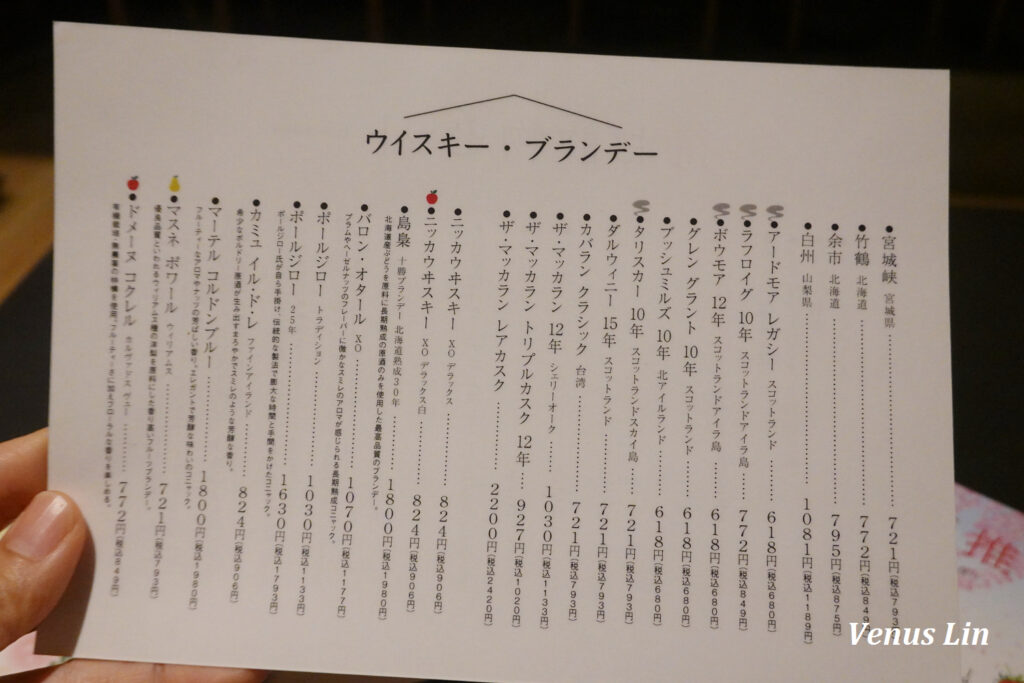 ウイスキー・ブランデー
●宮城峡 宮城県…………721円(税込793円)
●竹鶴 北海道…………772円(税込849円)
●余市 北海道…………795円(税込875円)
●白州 山梨県…………1081円(税込1189円)
●アードモア レガシー スコットランド……618円(税込680円)
●ラフロイグ 10年 スコットランドアイラ島……772円(税込849円)
●ボウモア 12年 スコットランドアイラ島……618円(税込680円)
●グレン グラント 10年 スコットランド……618円(税込680円)
●ブッシュミルズ 10年 北アイルランド……618円(税込680円)
●タリスカー 10年 スコットランドスカイ島……721円(税込793円)
●ダルウィニー 15年 スコットランド……721円(税込793円)
●カバラン クラシック 台湾……721円(税込793円)
●ザ・マッカラン 12年 シェリーオーク……1030円(税込1133円)
●ザ・マッカラン トリプルカスク 12年…927円(税込1020円)
●ザ・マッカラン レアカスク……2200円(税込2420円)
●ニッカウヰスキー XO デラックス……824円(税込906円)
●ニッカウヰスキー XO デラックス白……824円(税込906円)
●島梟 十勝ブランデー 北海道熟成30年……1800円(税込1980円)
北海道産ぶどうを原料に長期熟成の原酒のみを使用した最高品質のブランデー。
●バロン・オタール XO……1070円(税込1177円)
プラムやヘーゼルナッツのフレーバーに微かなスミレのアロマが感じられる長期熟成コニャック。
●ポールジロー トラディション……1030円(税込1133円)
●ポールジロー 25年……1630円(税込1793円)
ポールジロー氏が自ら手掛け、伝統的な製法で膨大な時間と手間をかけたコニャック。
●カミュ イル・ド・レ ファインアイランド……824円(税込906円)
希少なボルドリー原酒が生み出すまろやかでスミレのような芳醇な香り。
●マーテル コルドンブルー……1800円(税込1980円)
フルーティーなアロマやナッツの芳ばしい香り。エレガントで芳醇な味わいのコニャック。
●マスネ ポワール ウィリアムス……721円(税込793円)
優良品質といわれるウィリアム種の洋梨を原料にした香り高いフルーツブランデー。
●ドメーヌ コクレル カルヴァドス ヴュー……772円(税込849円)
有機栽培・無農薬の林檎を使用。フルーティーさに加えフローラルな香りを楽しめる。
推
Venus Lin